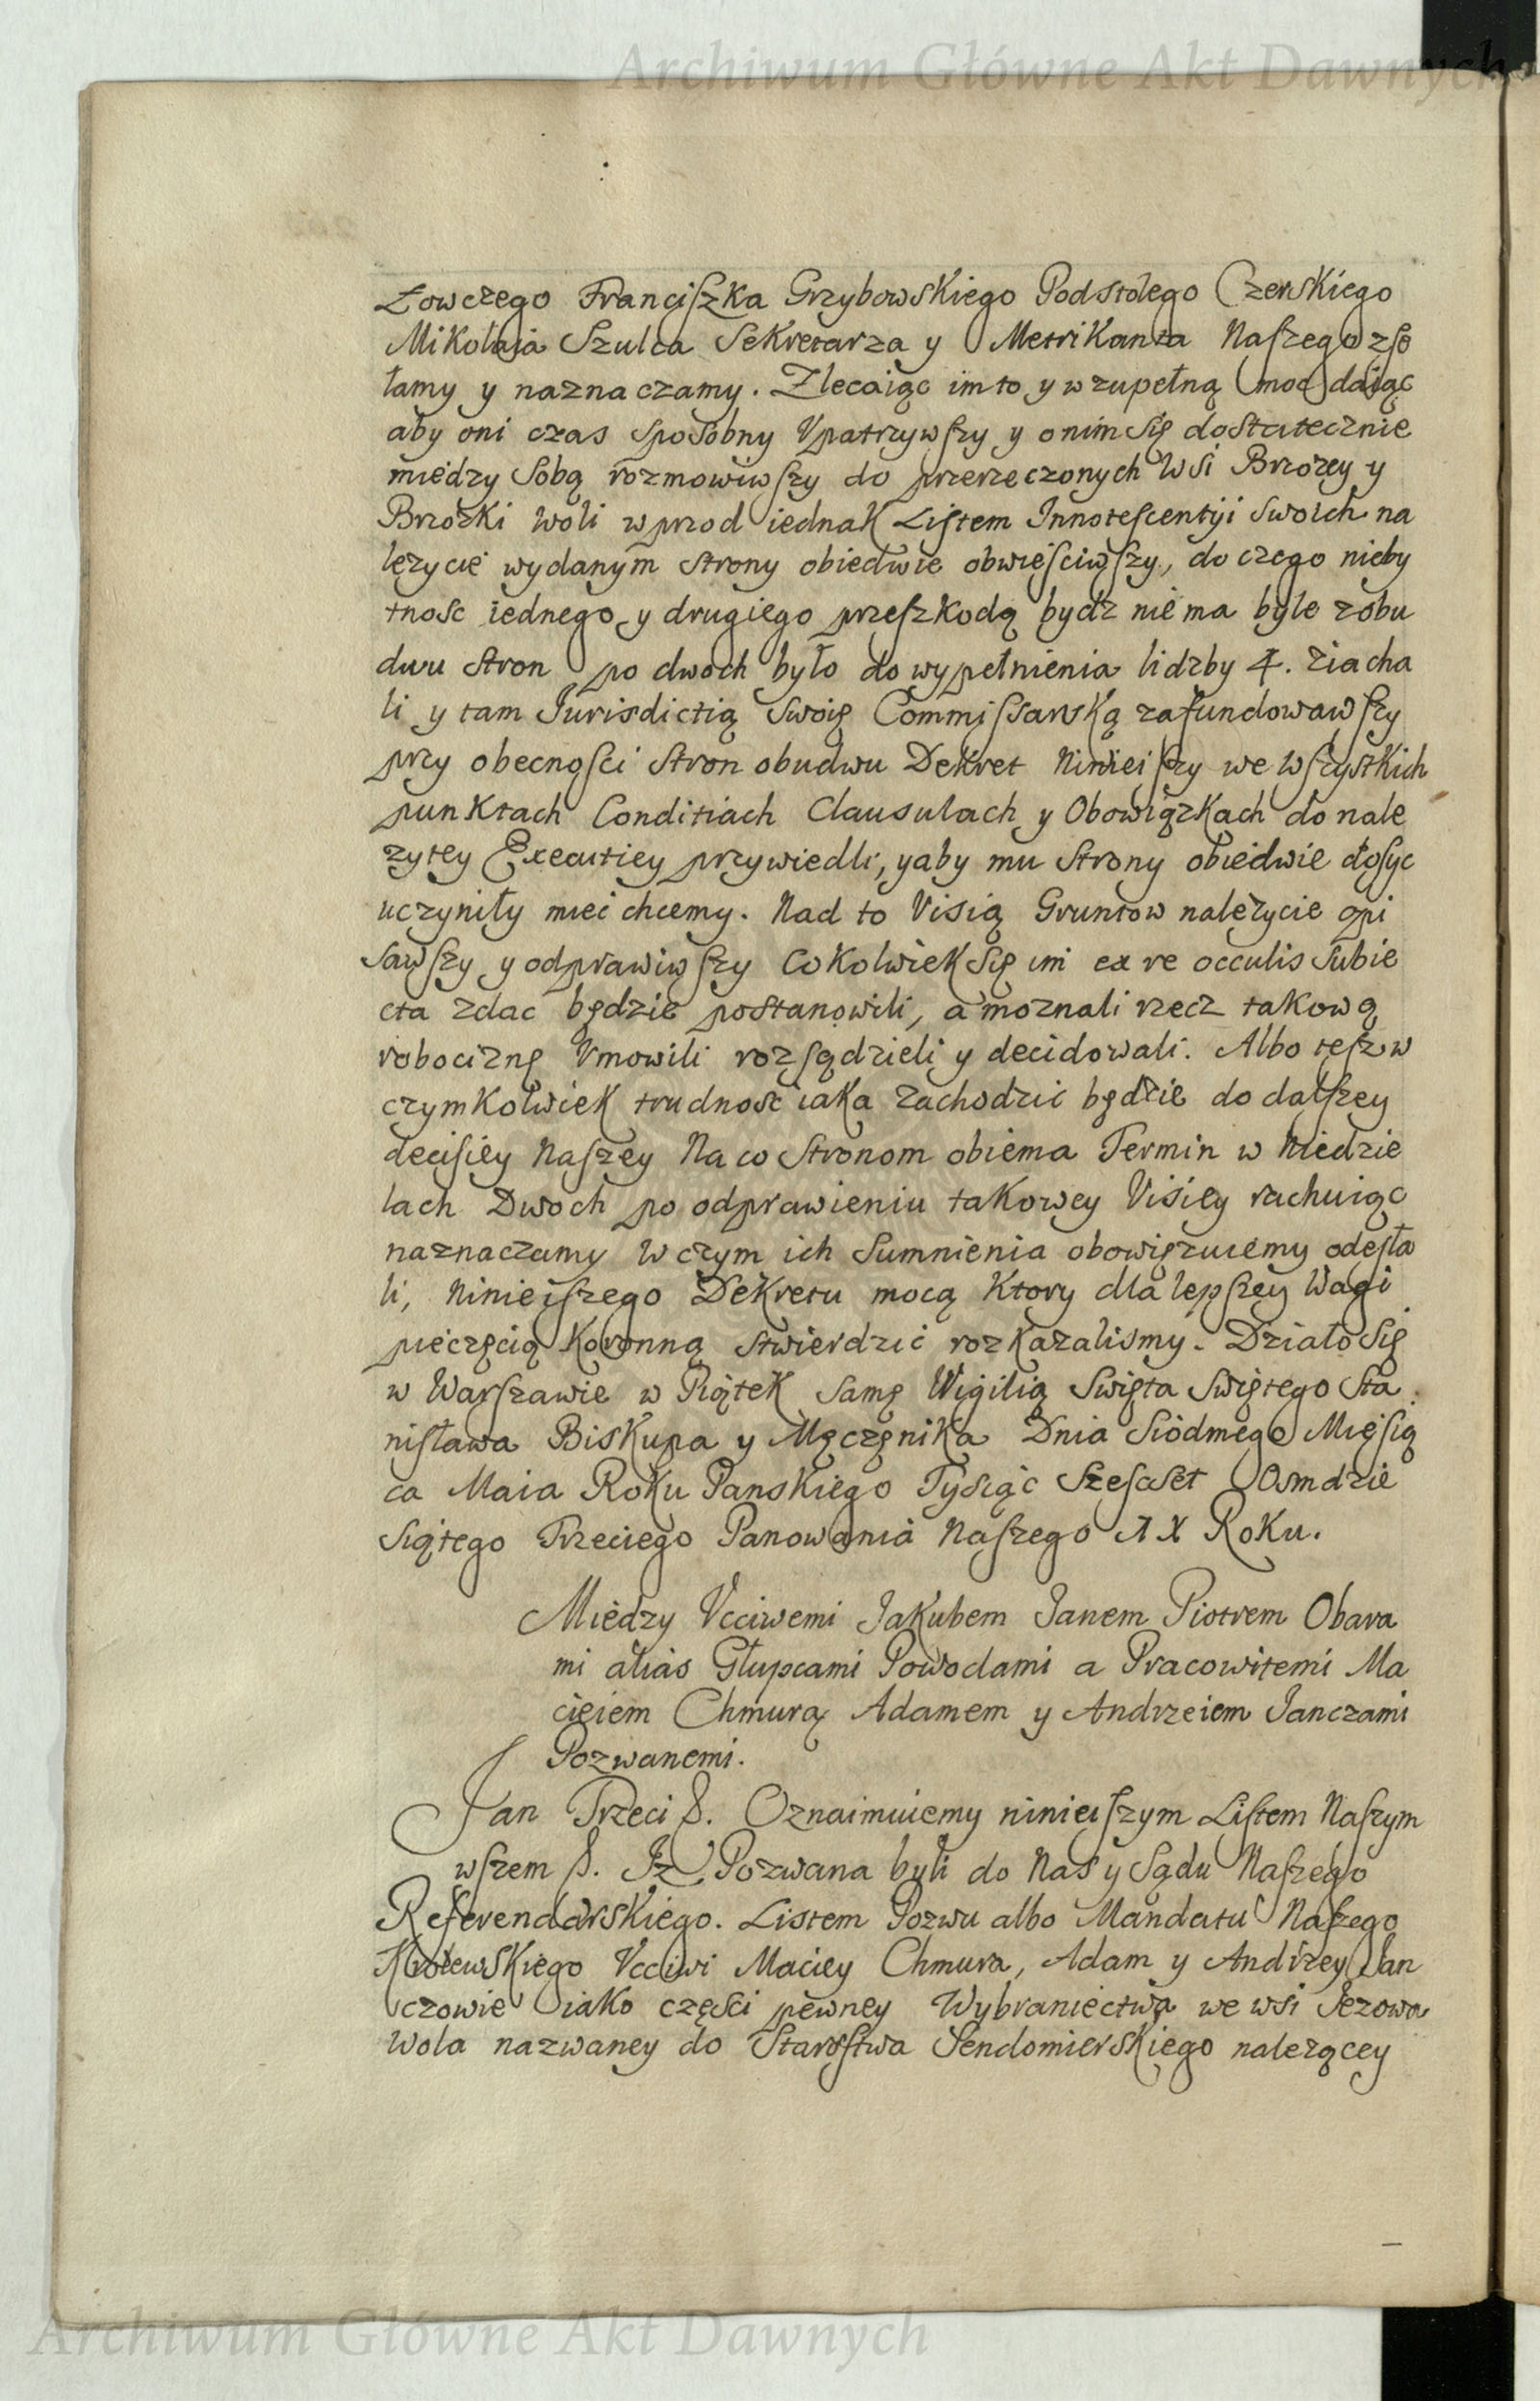 Archiwum Główne Akt Dawnych
Łowczego Franciszka Grzybowskiego Podstolego Czerskiego
Mikołaia Szulca Sekretarza y Metrikanta Naszego zse
łamy y naznaczamy. Zlecaiąc im to y w zupełną moc daiąc
aby oni czas sposobny Vpatrzywszy y onim się dostatecznie
miedzy sobą rozmowiwszy do przerzeczonych Wsi Brzozey y
Brzozki Woli wprzod iednak Listem Innotescentyi swoich na
lezycie wydanym strony obiedwie obwieściwszy, do czego nieby
tnosc iednego y drugiego przeszkodą bydz nie ma byle zobu
dwu stron po dwoch było do wypełnienia lidzby 4. ziacha
li y tam Jurisdictią swoię Commissarską zafundowawszy
przy obecnosci stron obudwu Dekret Ninieiszy we wszystkich
punktach Conditiach Clausulach y Obowiązkach do nale
zytey Executiey przywiedli, y aby mu strony obiedwie dosyc
uczyniły miec chcemy. Nad to Visią Gruntow nalezycie opi
sawszy y odprawiwszy Cokolwiek się im ex re occulis subie
cta zdac będzie postanowili, a moznali rzecz takową
robociznę Vmowili rozsądzieli y decidowali. Albo tesz w
czymkolwiek trudnosc iaka zachodzic będzie do dalszey
decisiey Naszey Na co stronom obiema Termin w Niedzie
lach Dwoch po odprawieniu takowey Visiey rachuiąc
naznaczamy w czym ich sumnienia obowięzuiemy odesła
li, Ninieiszego Dekretu mocą ktory dla lepszey wagi
pieczęcią Koronną stwierdzic rozkazalismy. Działo się
w Warszawie w Piątek samę Wigilią Swięta Swiętego Sta
nisława Biskupa y Męczęnika Dnia Siodmego Miesią
ca Maia Roku Panskiego Tysiąc Szescset Osmdzie
siątego Trzeciego Panowania Naszego IX Roku.
Miedzy Vcciwemi Jakubem Janem Piotrem Obara
mi alias Głupcami Powodami a Pracowitemi Ma
cieiem Chmurą Adamem y Andrzeiem Janczami
Pozwanemi.
Jan Trzeci &. Oznaimuiemy ninieiszym Listem Naszym
wszem &. Jz Pozwana byli do Nas y Sądu Naszego
Referendarskiego. Listem Pozwu albo Mandatu Naszego
Krolewskiego Vcciwi Maciey Chmura, Adam y Andrzey Jan
czowie iako częsci pewney Wybraniectwa we wsi Jezowa
Wola nazwaney do Starostwa Sendomierskiego nalezącey
Archiwum Główne Akt Dawnych